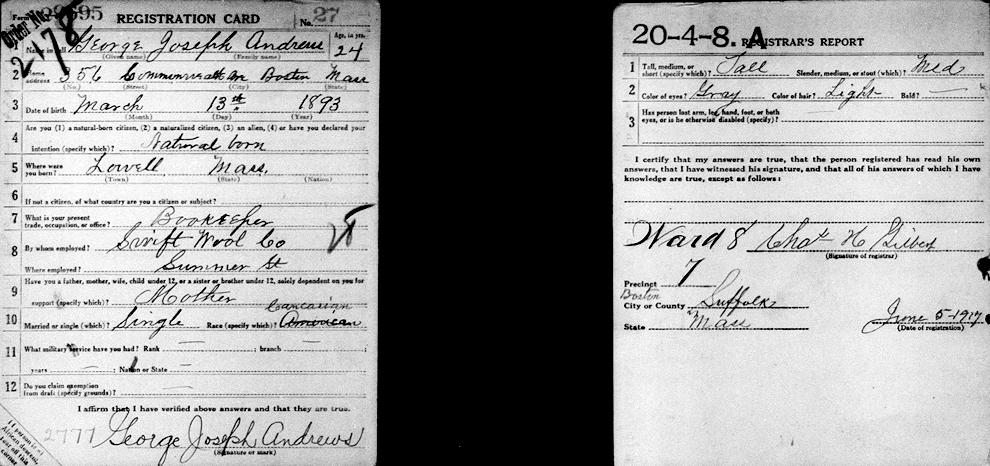 Form REGISTRATION CARD No. 27
Order No.
2178
1 Name in full George Joseph Andrews Age, in yrs. 24
(Given name) (Family name)
2 Home address 356 Commonwealth Av Boston Mass
(No.) (Street) (City) (State)
3 Date of birth March 13th 1893
(Month) (Day) (Year)
4 Are you (1) a natural-born citizen, (2) a naturalized citizen, (3) an alien, (4) or have you declared your
intention (specify which)? Natural born
5 Where were you born? Lowell Mass.
(Town) (State) (Nation)
6 If not a citizen, of what country are you a citizen or subject?
7 What is your present trade, occupation, or office? Bookkeeper
8 By whom employed? Swift Wool Co
Where employed? Summer St
9 Have you a father, mother, wife, child under 12, or a sister or brother under 12, solely dependent on you for
support (specify which)? Mother
Caucasian
10 Married or single (which)? Single Race (specify which)? American
11 What military service have you had? Rank — ; branch — ;
years — ; Nation or State —
12 Do you claim exemption from draft (specify grounds)? —
I affirm that I have verified above answers and that they are true.
2777 George Joseph Andrews
(Signature or mark)
If person is of
African descent,
tear off this
corner
20-4-8. A REGISTRAR'S REPORT
1 Tall, medium, or short (specify which)? Tall Slender, medium, or stout (which)? Med
2 Color of eyes? Gray Color of hair? Light Bald? —
3 Has person lost arm, leg, hand, foot, or both eyes, or is he otherwise disabled (specify)?
I certify that my answers are true, that the person registered has read his own
answers, that I have witnessed his signature, and that all of his answers of which I have
knowledge are true, except as follows:
Ward 8 Chas H Gilbert
(Signature of registrar)
Precinct 7
Boston
City or County Suffolk
State Mass June 5-1917
(Date of registration)